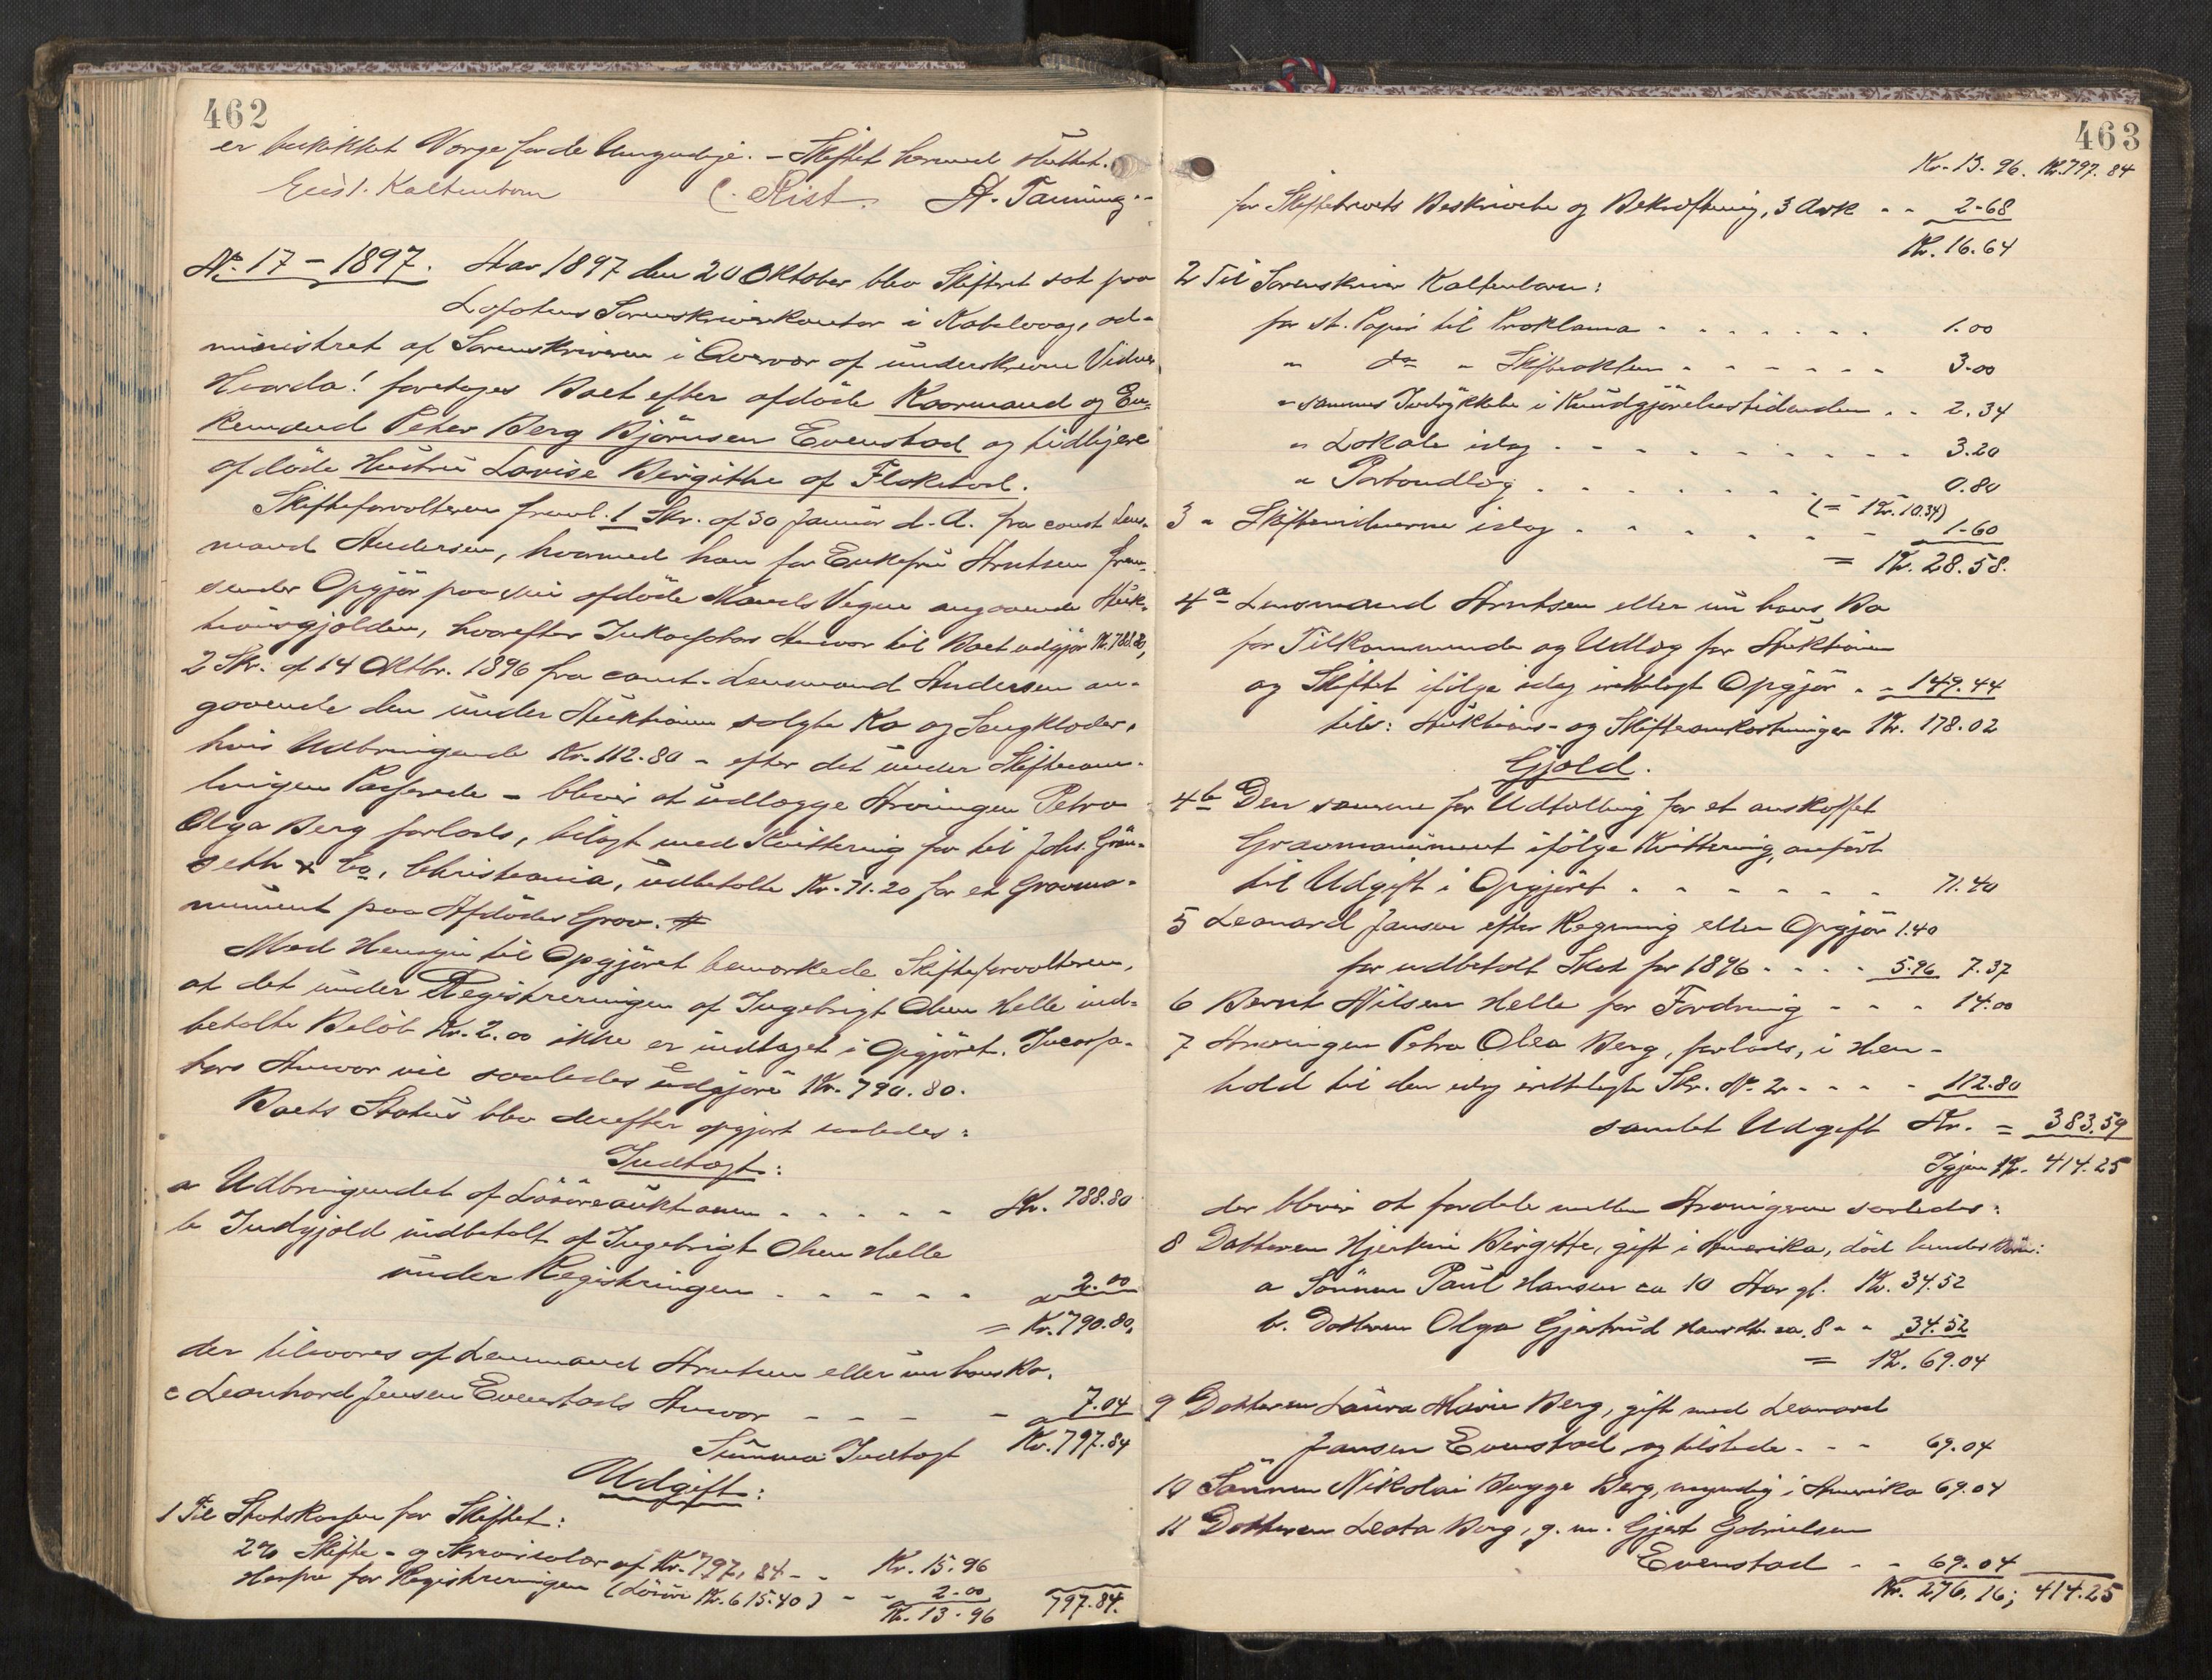 462
er beskikket Værge for de Umyndige. – Skiftet hermed sluttet.
Eust. Kaltenborn C. Rist. A. Tanning.
No. 17 – 1897. Aar 1897 den 20 Oktober blev Skifteret sat paa
Lofotens Sorenskriverkontor i Kabelvaag, ad-
ministret af Sorenskriveren i Overvær af underskrevne Vidner
Hvorda! foretages Boet efter afdöde Kaarmand og En-
kemand Peter Berg Björnsen Evenstad og tidligere
afdöde Hustru Lovise Birgitthe af Flakstad.
Skifteforvalteren freml. 1 Skr. af 30 Januar d. A. fra const. Lens-
mand Andersen, hvormed han for Enkefru Arntsen frem-
sender Opgjör paa sin afdöde Mands Vegne angaaende Auk-
tionsgjælden, hvorefter Inkassators Ansvar til Boet udgjör Kr. 788.80,
2 Skr. af 14 Oktbr. 1896 fra const. Lensmand Andersen an-
gaaende den under Auktionen solgte Ko og Sengklæder,
hvis Udbringende Kr. 112.80 – efter det under Skiftesam-
lingen Passerede – bliver at udlægge Arvingen Petra
Olga Berg forlods, bilagt med Kvittering for til Johs. Grön-
seth & Co, Christiania, udbetalte Kr. 71.20 for et Gravmo-
nument paa Afdödes Grav. #
Med Hensyn til Opgjöret bemærkede Skifteforvalteren,
at det under Registreringen af Ingebrigt Olsen Helle ind-
betalte Belöb Kr. 2.00 ikke er indtaget i Opgjöret. Incassa-
tors Ansvar vil saaledes udgjöre Kr. 790.80.
Boets Status blev derefter opgjort saaledes:
Indtægt:
a Udbringendet af Lösöreauktionen - - - - - Kr. 788.80
b Indgjæld indbetalt af Ingebrigt Olsen Helle
under Registringen - - - - - 2.00
= Kr. 790.80,
der tilsvares af Lensmand Arntsen eller nu hans Bo.
c Leonhard Jensen Evenstads Ansvar - - - - 7.04
Summa Indtægt Kr. 797.84
Udgift:
1 Til Statskassen for Skiftet:
2% Skifte- og Skrivesalær af Kr. 797.84 - - Kr. 15.96
Herfra for Registreringen (Lösöre Kr. 615.40) - - 2.00
Kr. 13.96 797.84.
463
Kr. 13.96. Kr. 797.84
for Skiftebrevets Beskrivelse og Bekræftning, 3 Ark - - 2.68
Kr. 16.64
2 Til Sorenskriver Kaltenborn:
for st. Papir til Proklama - - - - - - - 1.00
" do " Skifteakten - - - - - - 3.00
" sammes Indrykkelse i Kundgjörelsestidenden - - 2.34
" Lokale idag - - - - - - - - - 3.20
" Portoudlæg - - - - - - - 0.80
(= Kr. 10.34)
3 " Skiftevidnerne idag - - - - - - 1.60
= Kr. 28.58.
4a Lensmand Arntsen eller nu hans Bo
for Tilkommende og Udlæg for Auktionen
og Skiftet ifölge idag irettelagt Opgjör - - 149.44
tils: Auktions- og Skifteomkostninger Kr. 178.02
Gjæld.
4b Den samme for Udtælling for et anskaffet
Gravmonument ifölge Kvittering, anfört
til Udgift i Opgjöret - - - - - - - 71.40
5 Leonard Jensen efter Regning eller Opgjör 1.40
for udbetalt Skat for 1896 - - - - 5.96 7.37
6 Bernt Nilsen Helle for Fordring - - - 14.00
7 Arvingen Petra Olea Berg, forlods, i Hen-
hold til den idag irettelagte Skr. No. 2 - - - - 112.80
samlet Udgift Kr. = 383.59
Igjen Kr. 414.25
der bliver at fordele mellem Arvingerne saaledes:
8 Datteren Hjertine Birgitte, gift i Amerika, död hendes Börn:
a Sönnen Paul Hansen ca 10 Aar gl. Kr. 34.52
b. Datteren Olga Gjertrud Hansdtr. ca. 8 - - 34.52
= Kr. 69.04
9 Datteren Laura Marie Berg, gift med Leonard
Jensen Evenstad og tilstede - - - 69.04
10 Sönnen Nikolai Bugge Berg, myndig i Amerika 69.04
11 Datteren Lesta Berg, g. m. Gjert Gabrielsen
Evenstad - - 69.04
Kr. 276.16; 414.25